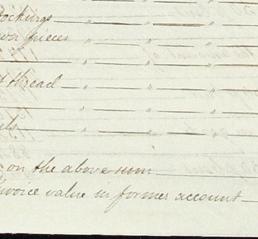 ockings " "
wo pieces " "
" "
t thread " "
" "
ils " "
on the above sum
nvoice value in former account